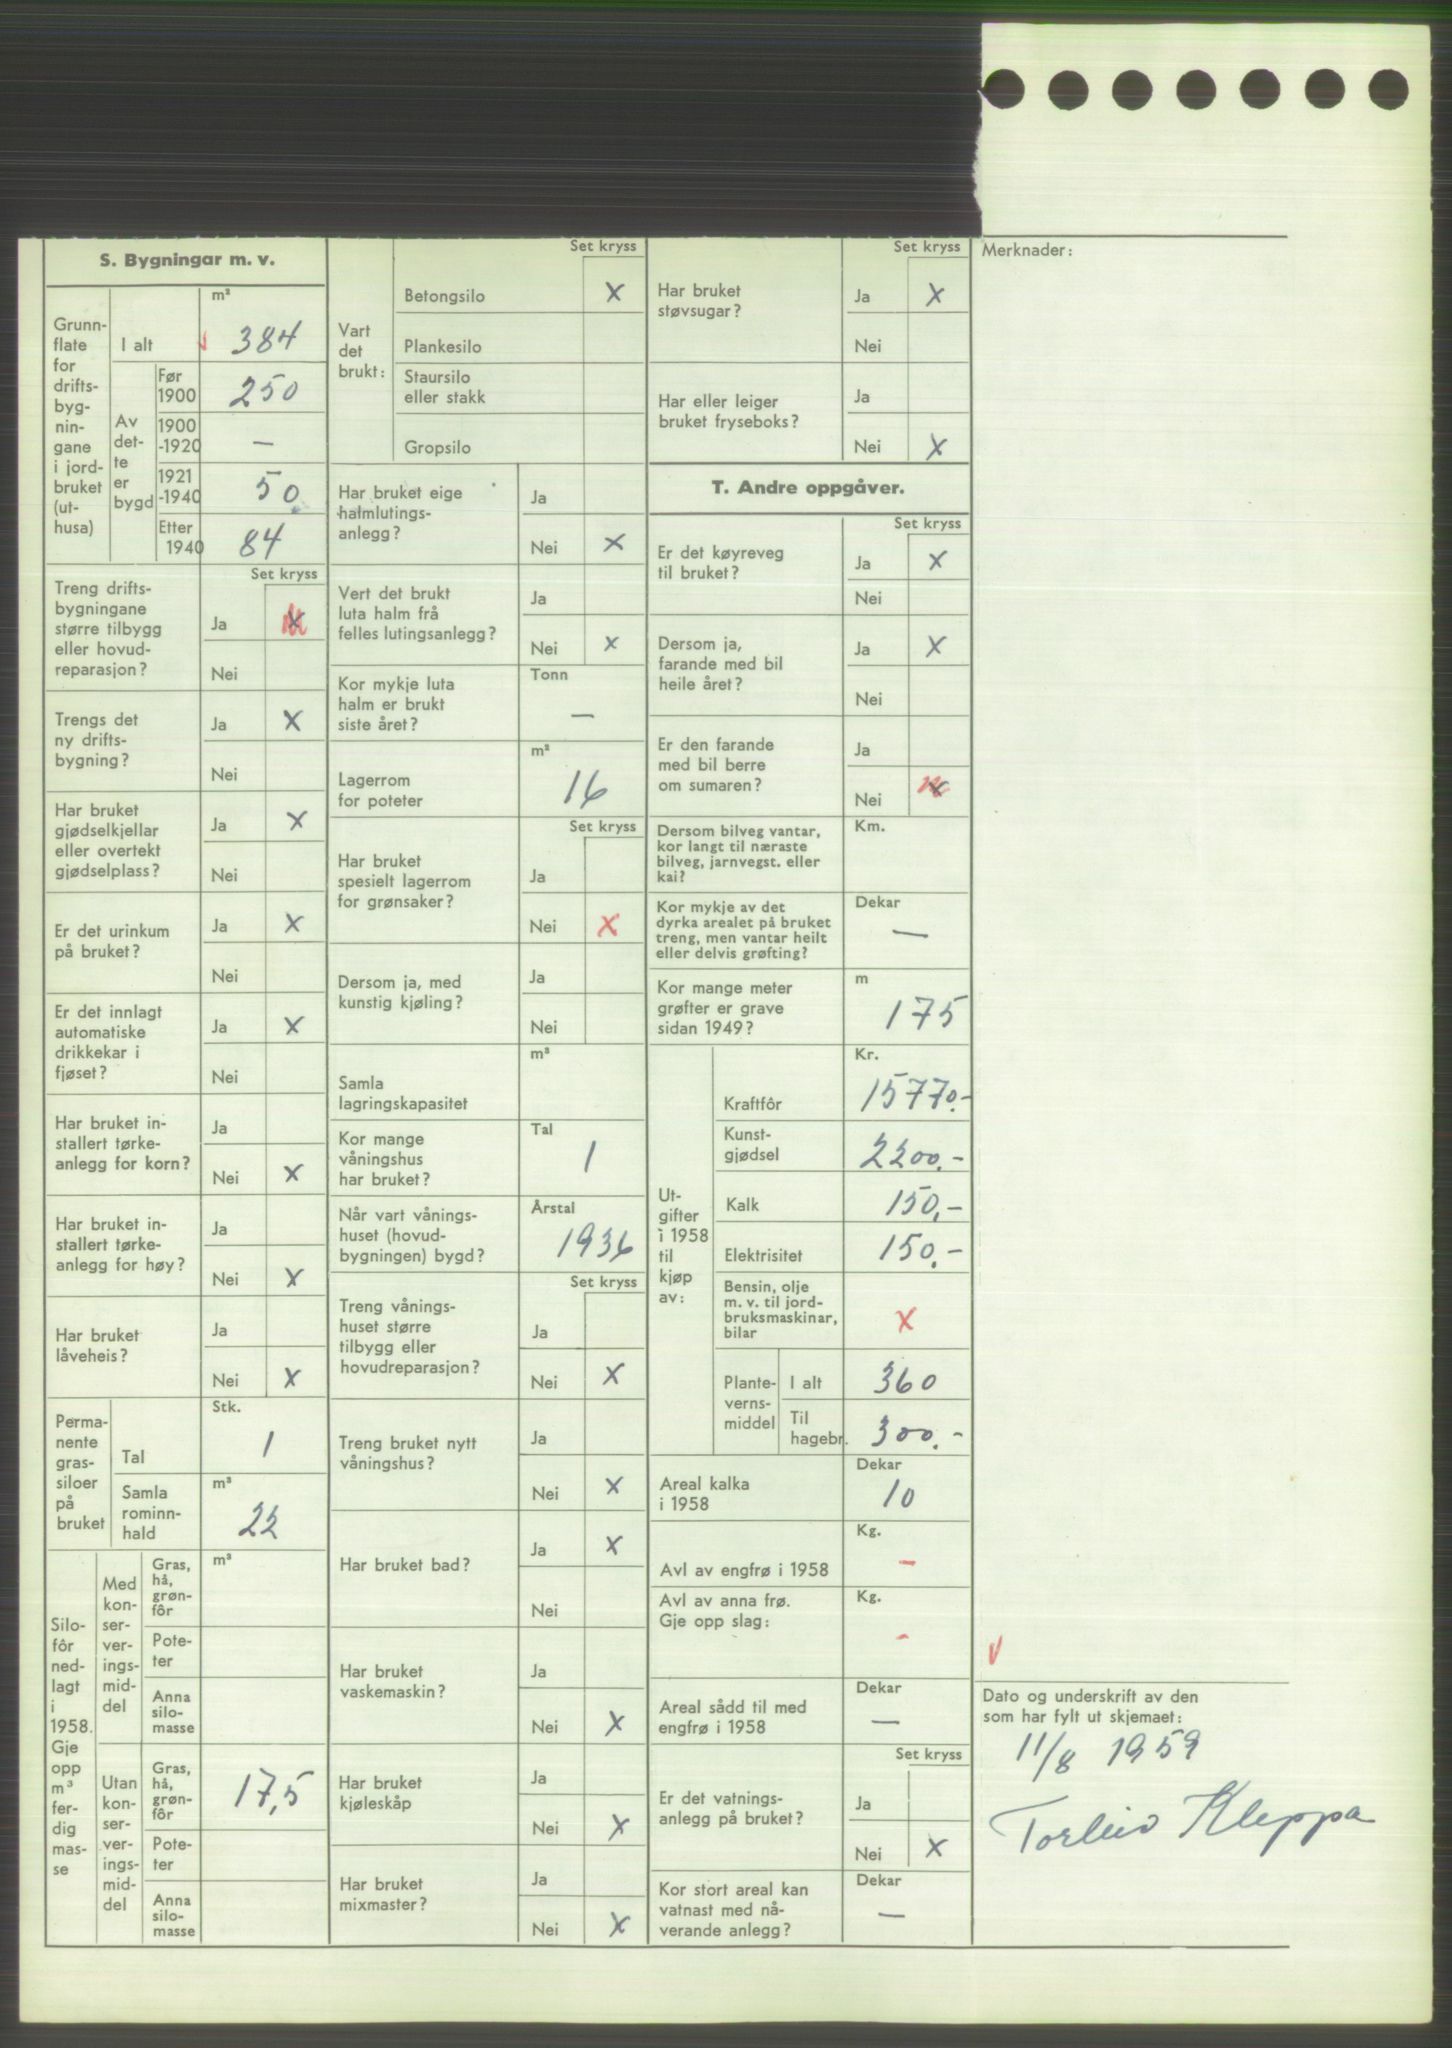 S. Bygningar m. v.
Grunn-
flate
for
drifts-
byg-
nin-
gane
i jord-
bruket
(ut-
husa)
m²
I alt
384
Av
det-
te
er
bygd
Før
1900
250
1900
-1920
—
1921
-1940
50
Etter
1940
84
Set kryss
Treng drifts-
bygningane
større tilbygg
eller hovud-
reparasjon?
Ja
x
Nei
Trengs det
ny drifts-
bygning?
Ja
x
Nei
Har bruket
gjødselkjellar
eller overtekt
gjødselplass?
Ja
x
Nei
Er det urinkum
på bruket?
Ja
x
Nei
Er det innlagt
automatiske
drikkekar i
fjøset?
Ja
x
Nei
Har bruket in-
stallert tørke-
anlegg for korn?
Ja
Nei
x
Har bruket in-
stallert tørke-
anlegg for høy?
Ja
Nei
x
Har bruket
låveheis?
Ja
Nei
x
Perma-
nente
gras-
siloer
på
bruket
Stk.
Tal
1
m³
Samla
rominn-
hald
22
Silo-
fôr
ned-
lagt
i
1958.
Gje
opp
m³
fer-
dig
mas-
se
Med
kon-
ser-
ver-
ings-
mid-
del
m³
Gras,
hå,
grøn-
fôr
Pote-
ter
Anna
silo-
masse
Utan
kon-
ser-
ver-
ings-
mid-
del
Gras,
hå,
grøn-
fôr
17,5
Pote-
ter
Anna
silo-
masse
Set kryss
Vart
det
brukt:
Betongsilo
x
Plankesilo
Staursilo
eller stakk
Gropsilo
Har bruket eige
halmlutings-
anlegg?
Ja
Nei
x
Vert det brukt
luta halm frå
felles lutingsanlegg?
Ja
Nei
x
Kor mykje luta
halm er brukt
siste året?
Tonn
—
Lagerrom
for poteter
m²
16
Set kryss
Har bruket
spesielt lagerrom
for grønsaker?
Ja
Nei
x
Dersom ja, med
kunstig kjøling?
Ja
Nei
Samla
lagringskapasitet
m³
Kor mange
våningshus
har bruket?
Tal
1
Når vart vånings-
huset (hovud-
bygningen) bygd?
Årstal
1936
Set kryss
Treng vånings-
huset større
tilbygg eller
hovudreparasjon?
Ja
Nei
x
Treng bruket nytt
våningshus?
Ja
Nei
x
Har bruket bad?
Ja
x
Nei
Har bruket
vaskemaskin?
Ja
Nei
x
Har bruket
kjøleskåp
Ja
Nei
x
Har bruket
mixmaster?
Ja
Nei
x
Set kryss
Har bruket
støvsugar?
Ja
x
Nei
Har eller leiger
bruket fryseboks?
Ja
Nei
x
T. Andre oppgåver.
Set kryss
Er det køyreveg
til bruket?
Ja
x
Nei
Dersom ja,
farande med bil
heile året?
Ja
x
Nei
Er den farande
med bil berre
om sumaren?
Ja
Nei
x
Dersom bilveg vantar,
kor langt til næraste
bilveg, jarnvegst. eller
kai?
Km.
Kor mykje av det
dyrka arealet på bruket
treng, men vantar heilt
eller delvis grøfting?
Dekar
—
Kor mange meter
grøfter er grave
sidan 1949?
m
175
Ut-
gifter
i 1958
til
kjøp
av:
Kr.
Kraftfôr
15770.-
Kunst-
gjødsel
2200.-
Kalk
150,-
Elektrisitet
150.-
Bensin, olje
m. v. til jord-
bruksmaskinar,
bilar
x
Plante-
verns-
middel
I alt
360
Til
hagebr.
300.-
Areal kalka
i 1958
Dekar
10
Avl av engfrø i 1958
Kg.
-
Avl av anna frø.
Gje opp slag:
Kg.
-
Areal sådd til med
engfrø i 1958
Dekar
—
Set kryss
Er det vatnings-
anlegg på bruket?
Ja
Nei
x
Kor stort areal kan
vatnast med nå-
verande anlegg?
Dekar
—
Merknader:
Dato og underskrift av den
som har fylt ut skjemaet:
11/8 1959
Torleiv Kleppa